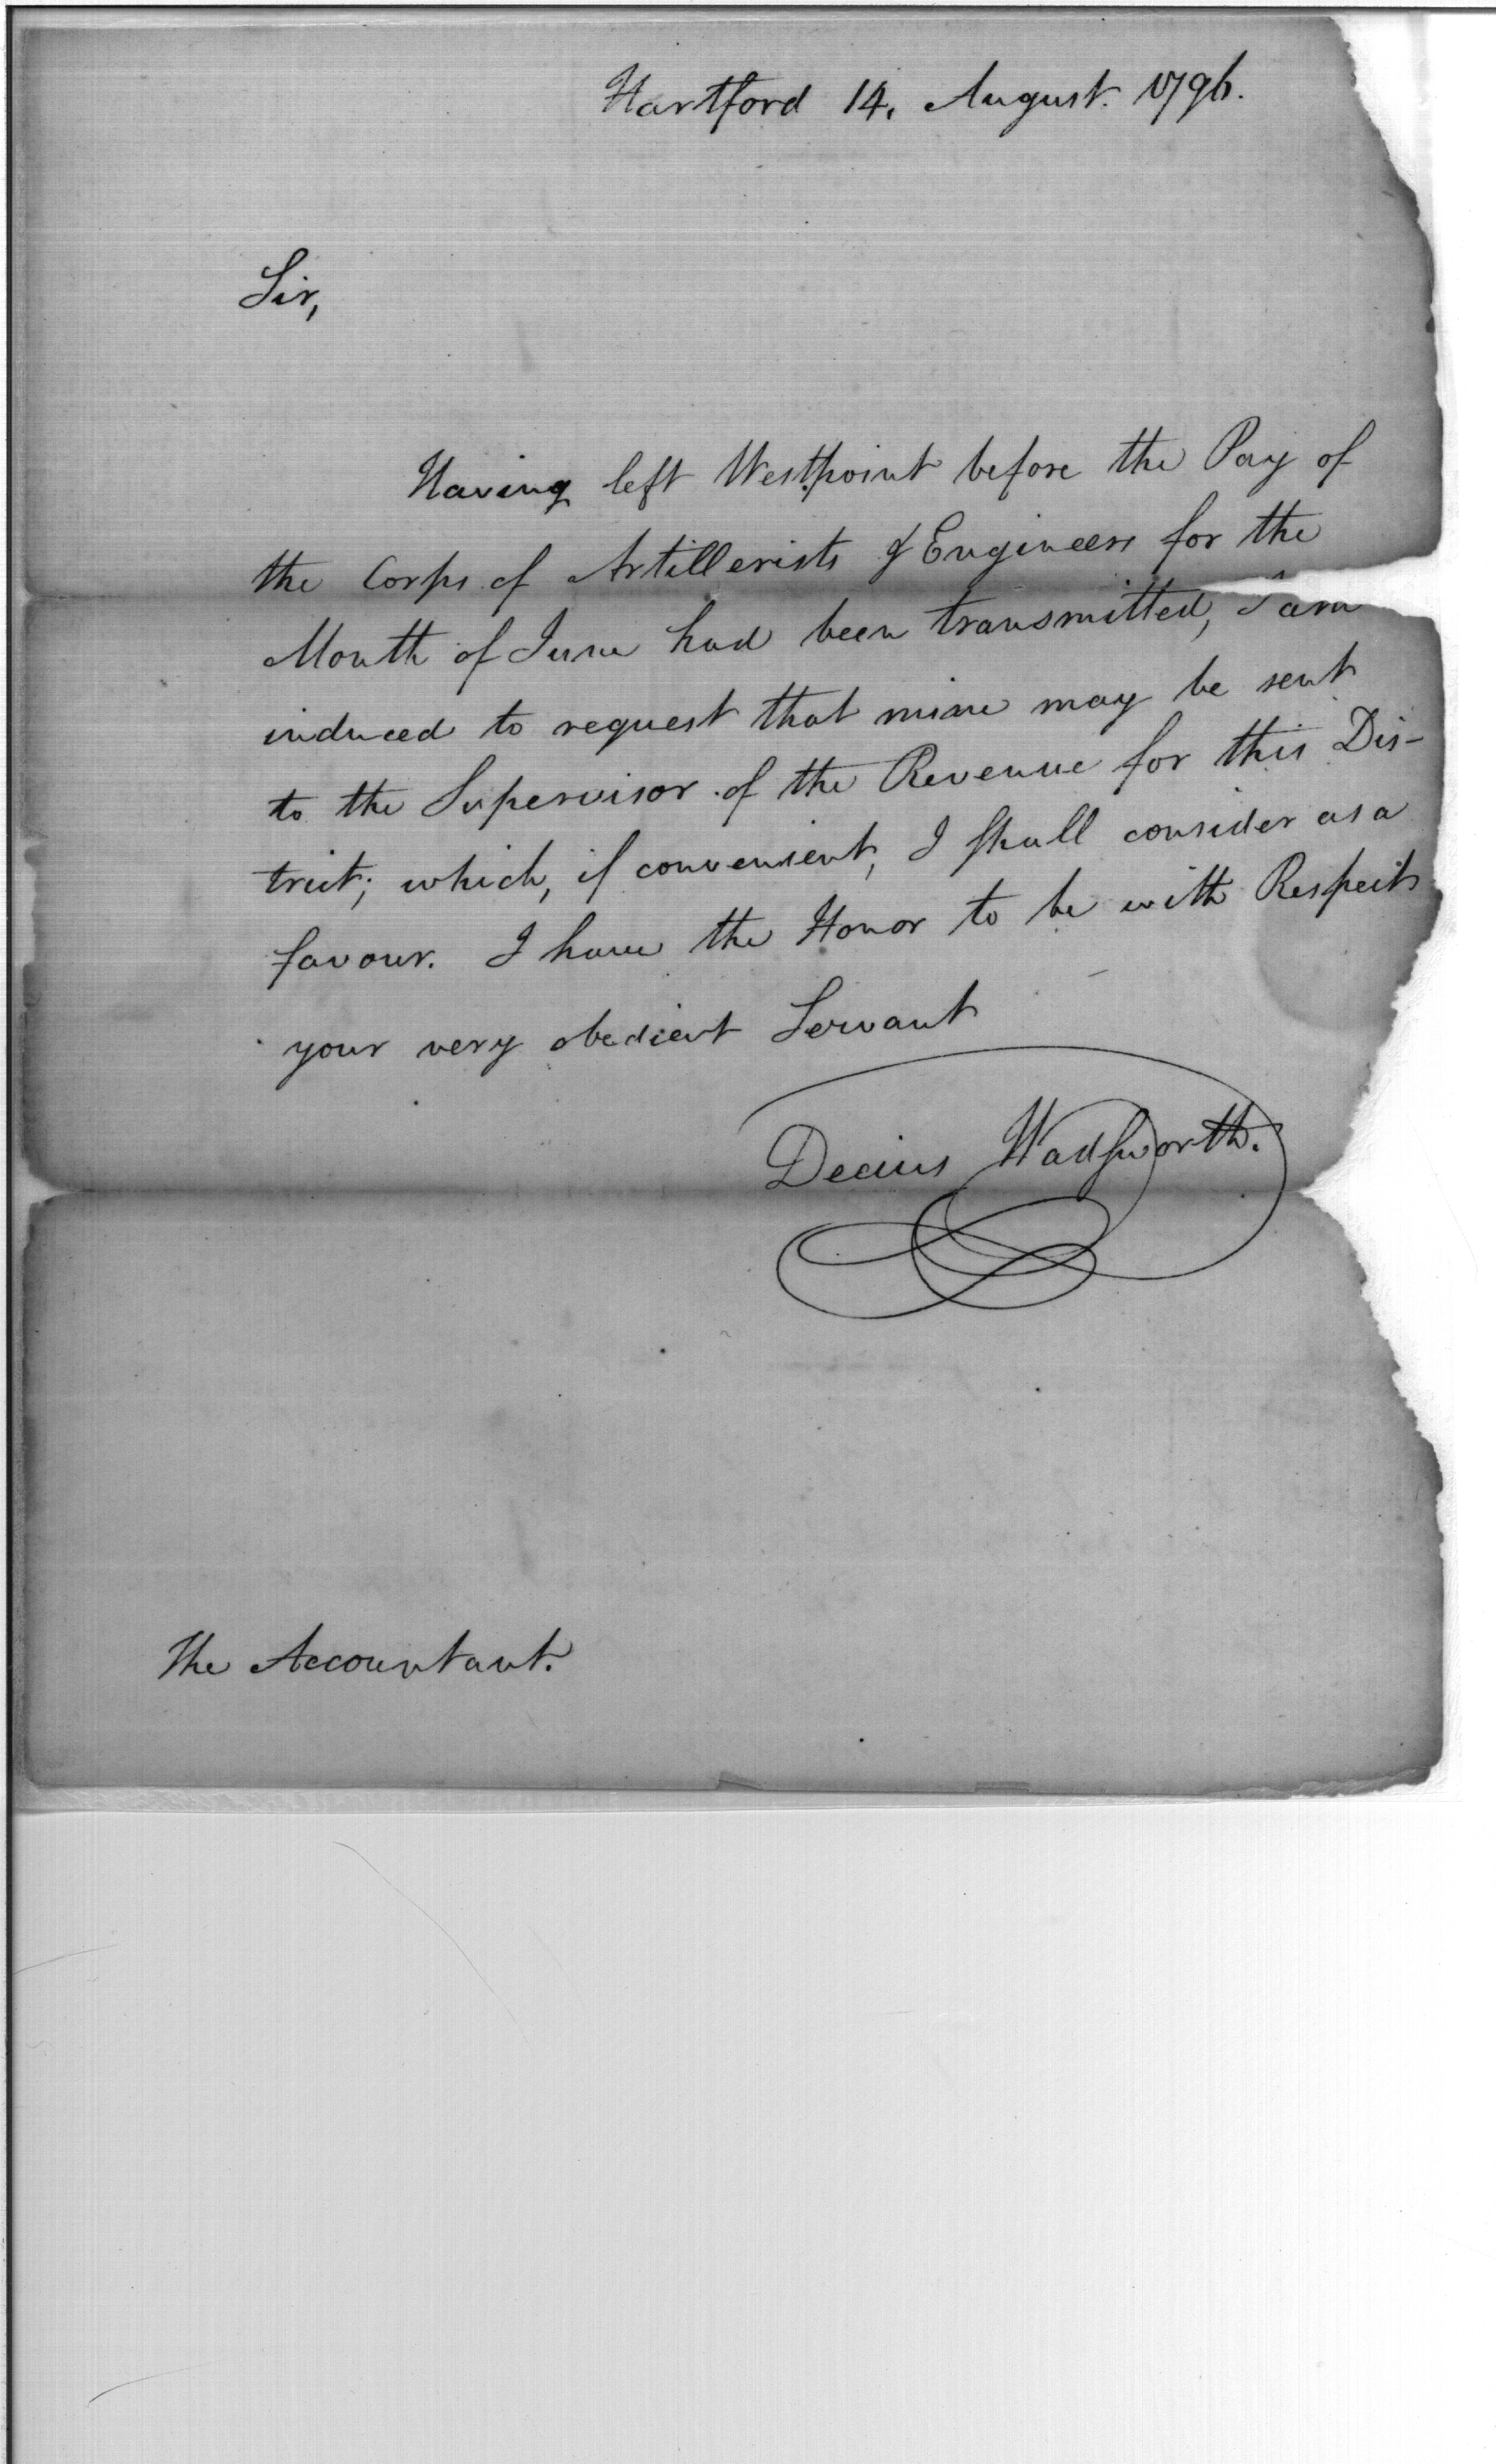 Hartford 14, August. 1796.
Sir,
Having left Westpoint before the Pay of
the Corps of Artillerists & Engineers for the
Month of June had been transmitted, I am
induced to request that mine may be sent
to the Supervisor of the Revenue for this Dis-
trict; which, if convenient, I shall consider as a
favour. I have the Honor to be with Respect
your very obedient Servant
Decius Wadsworth.
The Accountant.